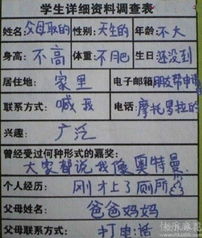 学生详细资料调查表
姓名:父母取的 性别:天生的 年龄:不大
身高:不高 体重:不肥 生日 还没到
居住地:家里 电子邮箱
联系方式:喊我 电话:摩托罗拉的
兴趣:广泛
曾经受过何种形式的嘉奖:
大家都说我像奥特曼
个人经历:刚才上了厕所
父母姓名:爸爸妈妈
父母联系方式:打电话